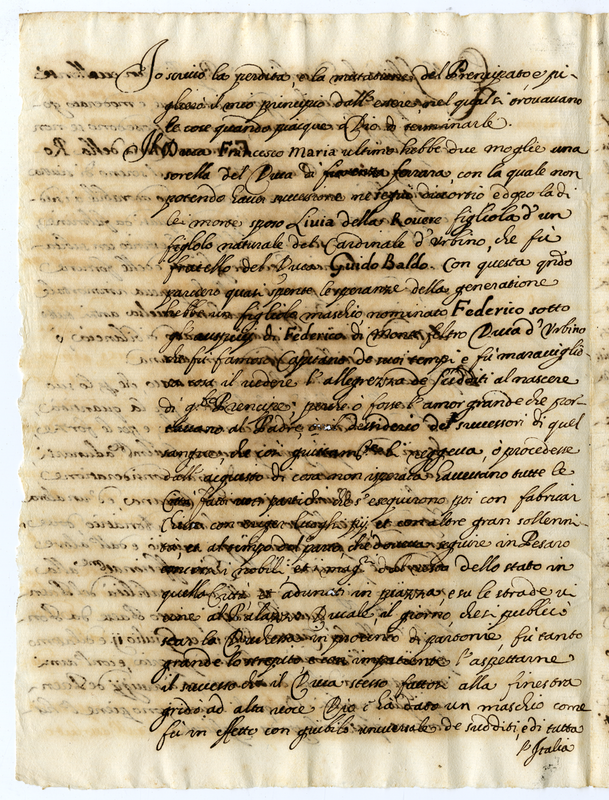 Io scrivo la perdita, e la mutatione del Prencipato e pi-
gliarò il mio principio dall' essere, nel qual si trovavano
le cose quando piacque a Dio di terminarle.
Il Duca Francesco Maria ultimo hebbe due moglie una
sorella del Duca di ferrara con la quale non
potendo haver successione ne seguì divortio e dopo la di
lei morte sposò Livia della Rovere figliola d'un
figlolo naturale del Cardinale d'Urbino, che fù
fratello del Duca Guido Baldo. Con questa qndo
parevano quasi spente le speranze della generatione
hebbe un figliolo maschio nominato Federico sotto
gl' auspicij di Federico di Monte feltro Duca d'Urbino
che fù famoso Capitano de suoi tempi e fù maraviglio-
sa cosa il vedere l'allegrezza de sudditi al nascere
di qsto Prencipe, perche ò fosse l'amor grande che por-
tavano al Padre, ò il desiderio de successori di quel
sangue, che con giustam.te li reggeva, ò procedesse
dall' acquisto di cosa non sperata havevano tutte le
Città fatti voti partichi che s' eseguirono poi con fabricar
Chiese con erger luoghi pij, et con altre gran sollenni-
tà et al tempo del parto che doveva seguire in Pesaro
i nobili et mag.ri del resto dello stato in
quella Città et adunati in piazza, e su le strade vi-
cine al Palazzo Ducale, il giorno, che si publicò
star la Duchessa in procinto di partorire, fù tanto
grande lo strepito e così impatiente l'aspettarne
il successo che il Duca stesso fattosi alla finestra
gridò ad alta voce Dio c'ha dato un maschio come
fù in effetto con giubilo universale de sudditi, e di tutta
l' Italia